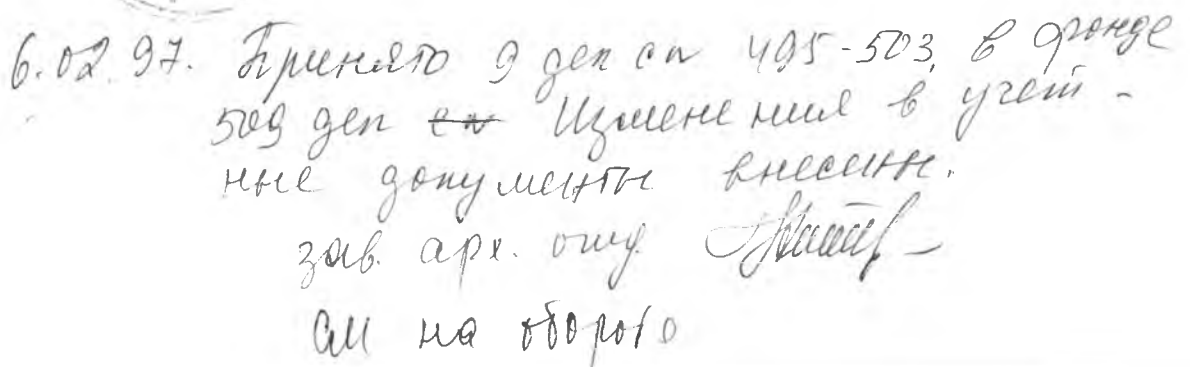 6.02.97. Принято 9 дел сп 495-503, в фонде
509 дел сп Изменения в учет-
ные документы внесены.
зав. арх. отд.
См на обороте